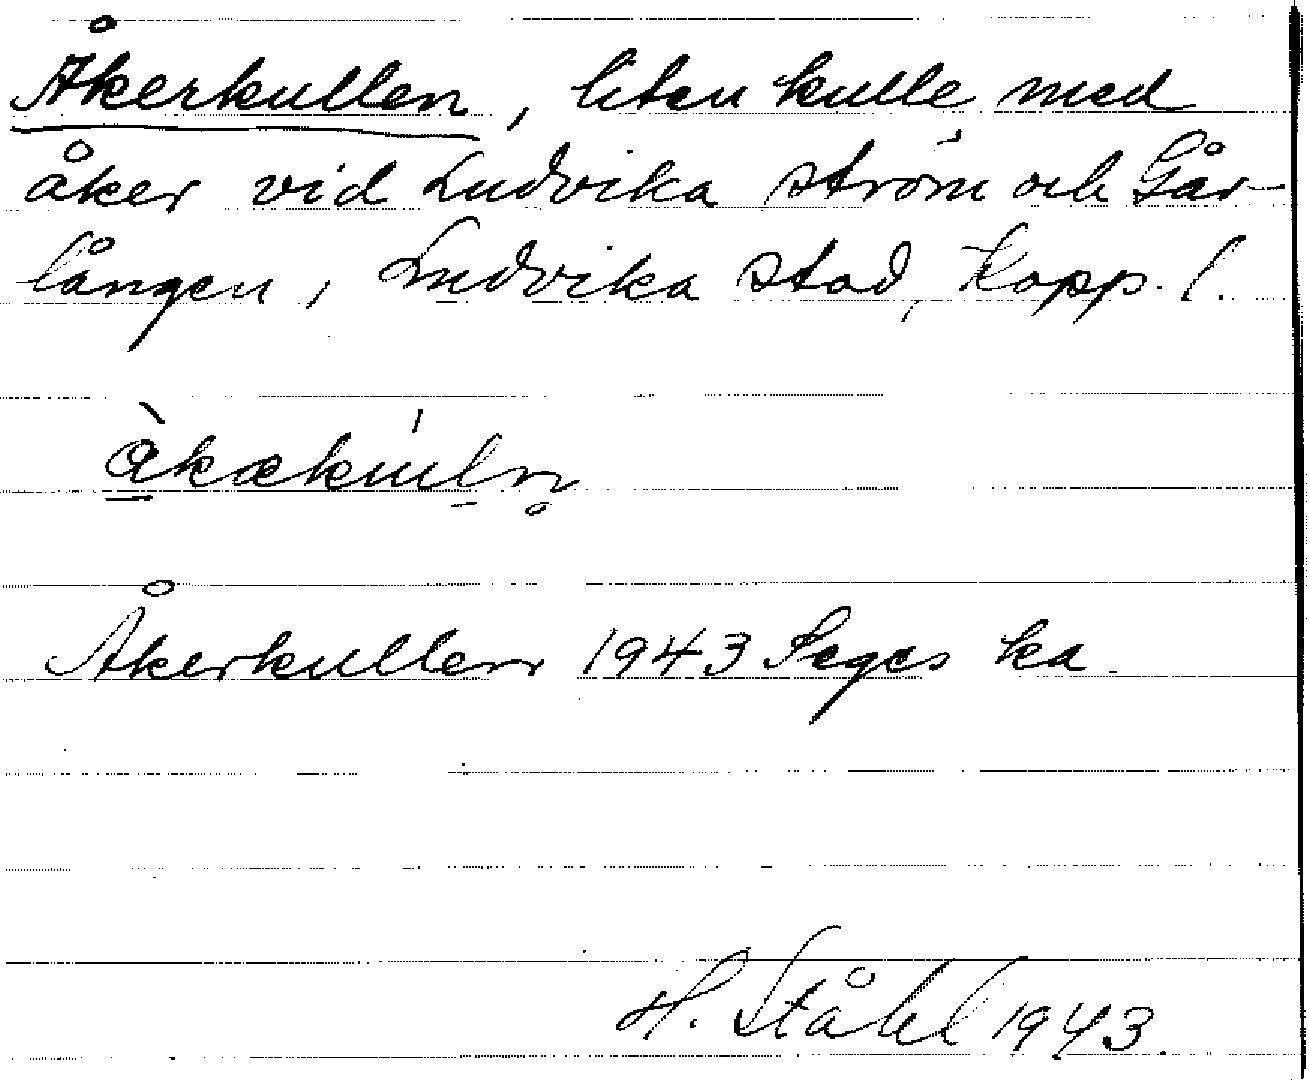 Åkerkullen, liten kulle med
åker vid Ludvika ström och Går-
lången, Ludvika stad, Kopp. l.
åkækuln
Åkerkullen 1943 Säges ha
H. Ståhl 1943.